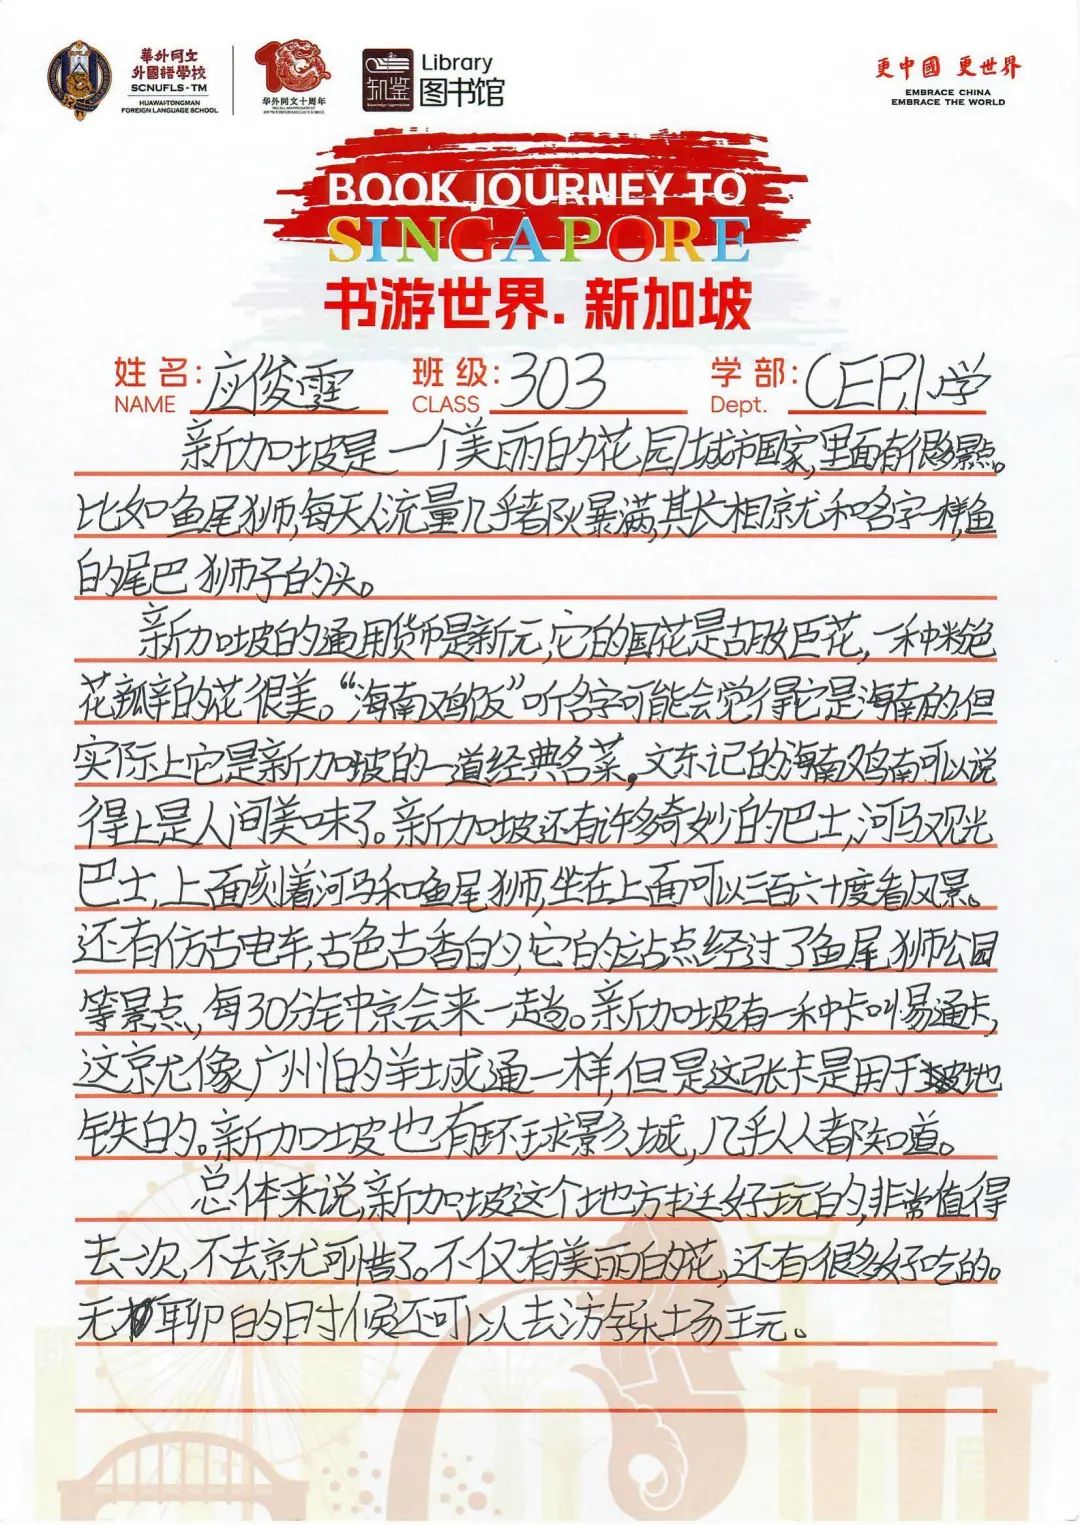 華外同文
外國語學校
SCNUFLS-TM
HUAWAI-TONGMAN
FOREIGN LANGUAGE SCHOOL
华外同文十周年
知鉴
Library
图书馆
更中國 更世界
EMBRACE CHINA
EMBRACE THE WORLD
BOOK JOURNEY TO
SINGAPORE
书游世界.新加坡
姓名:应俊霆 班级:303 学部:CEP小学
NAME CLASS Dept.
新加坡是一个美丽的花园城市国家,里面有很多景点。
比如鱼尾狮,每天人流量几乎都队暴满,其长相就和名字一样,鱼
的尾巴狮子的头。
新加坡的通用货币是新元,它的国花是胡姬花,一种粉色
花瓣的花很美。“海南鸡饭”听名字可能会觉得它是海南的但
实际上它是新加坡的一道经典名菜。文东记的海南鸡南可以说
得上是人间美味了。新加坡还有许多奇妙的巴士,河马观光
巴士,上面刻着河马和鱼尾狮,坐在上面可以三百六十度看风景。
还有仿古电车,古色古香的,它的站点经过了鱼尾狮公园
等景点,每30分钟就会来一趟。新加坡有一种卡叫易通卡,
这就像广州的羊城通一样,但是这张卡是用于坡地
铁的。新加坡也有环球影城,几乎人人都知道。
总体来说,新加坡这个地方挺好玩的,非常值得
去一次,不去就可惜了。不仅有美丽的花,还有很多好吃的。
无聊的时候还可以去游乐场玩。